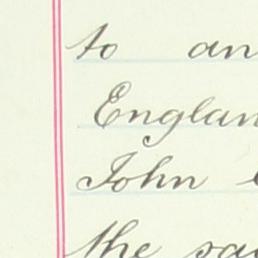 to an
Englan
John
the sa